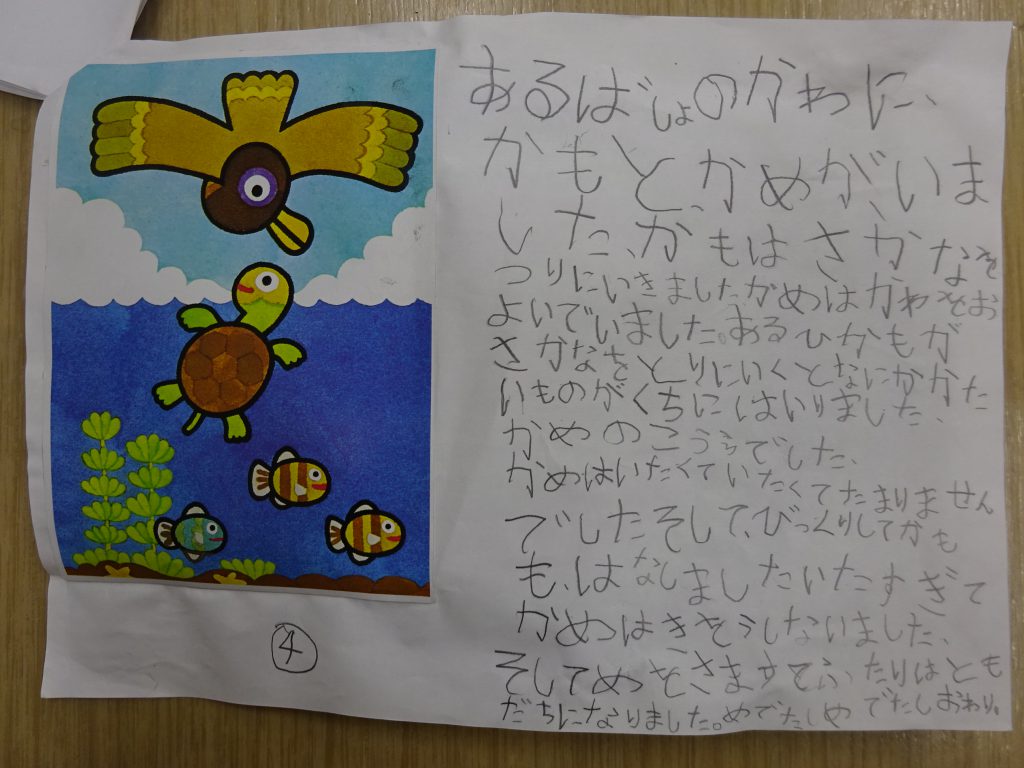 あるばしょのかわに、
かもと、かめが、いま
した、かもはさかなを
つりにいきました。かめはかわをお
よいでいました。あるひかもが
さかなをとりにいくとなにかかた
いものがくちにはいりました、
かめのこうらでした、
かめはいたくていたくてたまりません
でしたそして、びっくりしてかも
も、はなしましたいたすぎて
かめはきそうしないました、
そしてめをさますてふたりはとも
だちになりました。めでたしめでたしおわり。
④